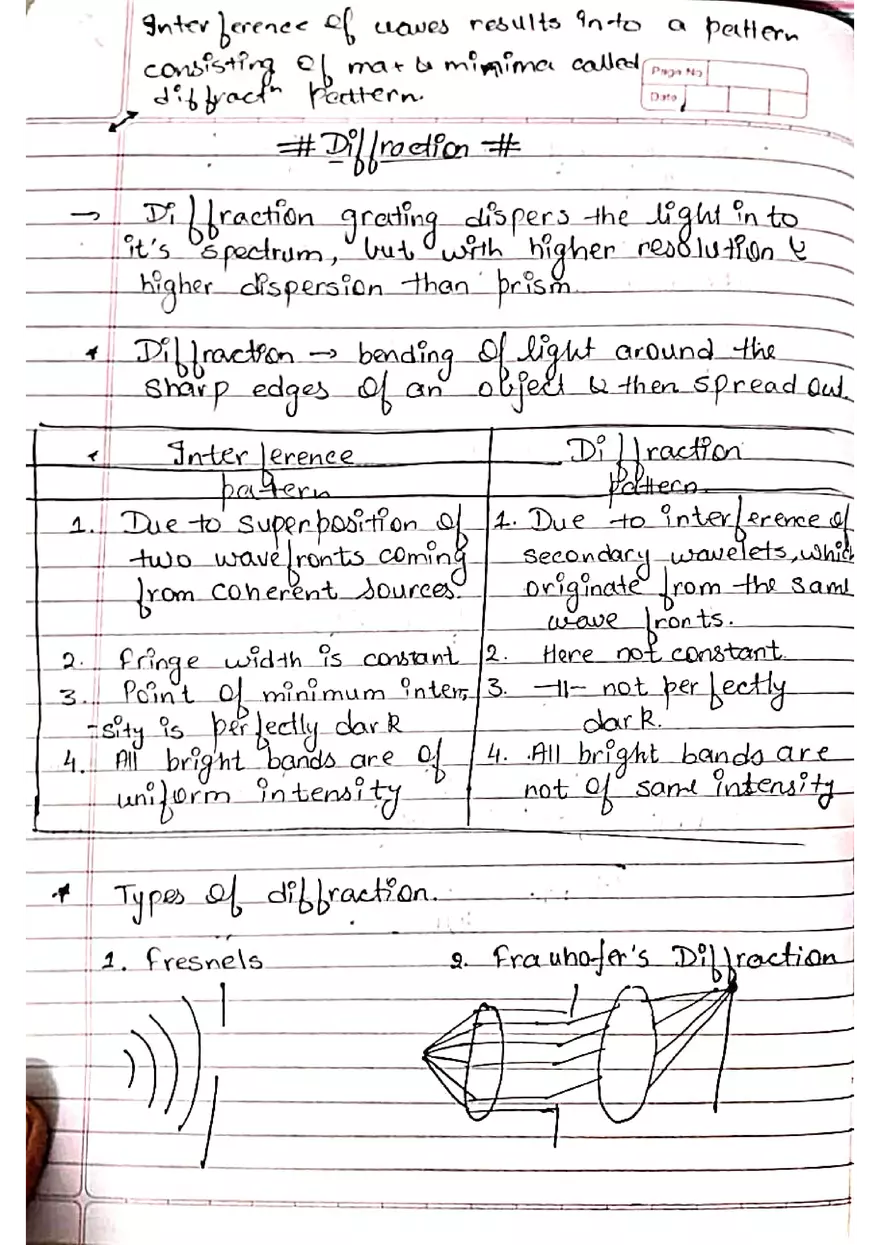 Interference of waves results into a pattern
consisting of max & minima called
diffractn Pattern.
Page No
Date
# Diffraction #
→ Diffraction grating dispers the light into
it's spectrum, but with higher resolution &
higher dispersion than prism
* Diffraction → bending of light around the
sharp edges of an object & then spread out.
* Interference
pattern
Diffraction
Pattern.
1. Due to superposition of
two wavefronts coming
from coherent sources.
1. Due to interference of
secondary wavelets, which
originate from the same
wave fronts.
2. Fringe width is constant
2. Here not constant.
3. Point of minimum inten
-sity is perfectly dark
3. -||- not perfectly
dark.
4. All bright bands are of
uniform intensity
4. All bright bands are
not of same intensity
* Types of diffraction.
1. Fresnels
2. Frauhofer's Diffraction